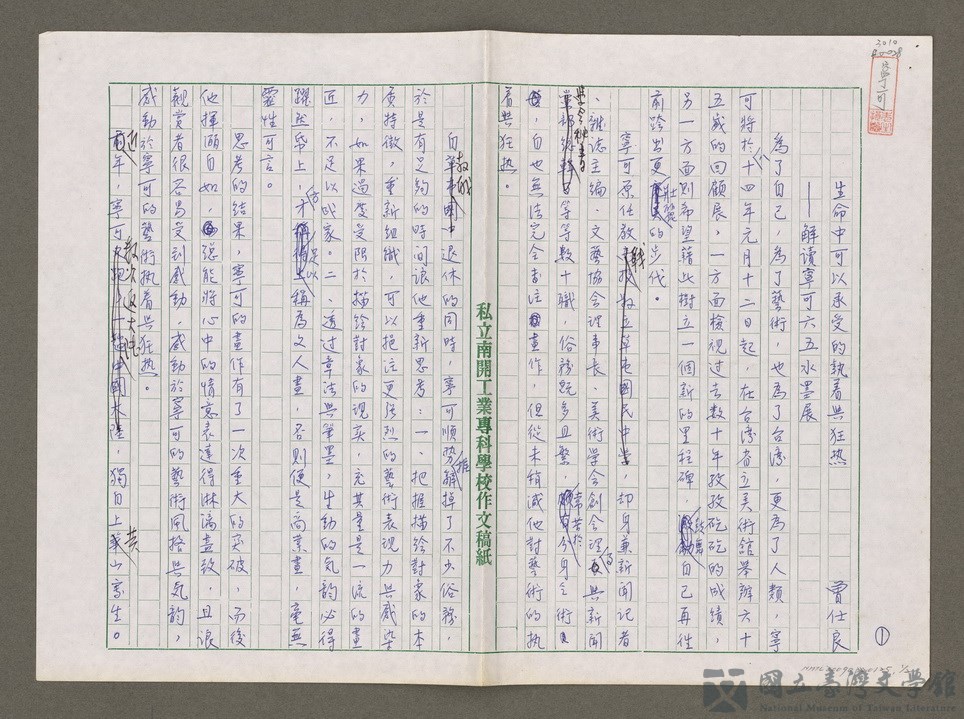 生命中可以承受的執着與狂热
——解讀寧可六五水墨展
曾仕良
①
為了自己，為了藝術，也為了台湾，更為了人類，寧
可將於八十四年元月十二日起，在台湾省立美術舘舉辦六十
五歲的回顧展，一方面檢視过去數十年孜孜矻矻的成績，
另一方面則希望藉此樹立一個新的里程碑，鼓勵自己再往
前跨出更壯濶的步伐。
寧可原任教職，却身兼新聞記者
、雜誌主編、文藝協会理事長、美術学会創会理事長與新聞
學会秘書等等數十職，俗務既多且繁，常苦於分身乏術
，自也無法完全專注畫作，但從未稍減他對藝術的执
着與狂热。
自教職退休的同時，寧可順势推掉了不少俗務，
於是有足夠的時间讓他重新思考：一、把握描绘對象的本
质特徵，重新組織，可以挹注更强烈的藝術表現力與感染
力，如果過度受限於描绘對象的現实，充其量是一流的畫
匠，不足以成家。二、透过章法與筆墨，生動的気韵必得
躍然紙上，才足以稱為文人畫，否則便是商業畫，毫無
靈性可言。
思考的结果，寧可的畫作有了一次重大的突破，而後
他揮洒自如，總能將心中的情意表達得淋漓盡致，且讓
觀赏者很容易受到感動，感動於寧可的藝術風格與気韵，
感動於寧可的藝術执着與狂热。
近年，寧可數次返大陸，獨自上黃山寫生。
私立南開工業專科學校作文稿紙
2010
寧可
國立臺灣文學館
National Museum of Taiwan Literature